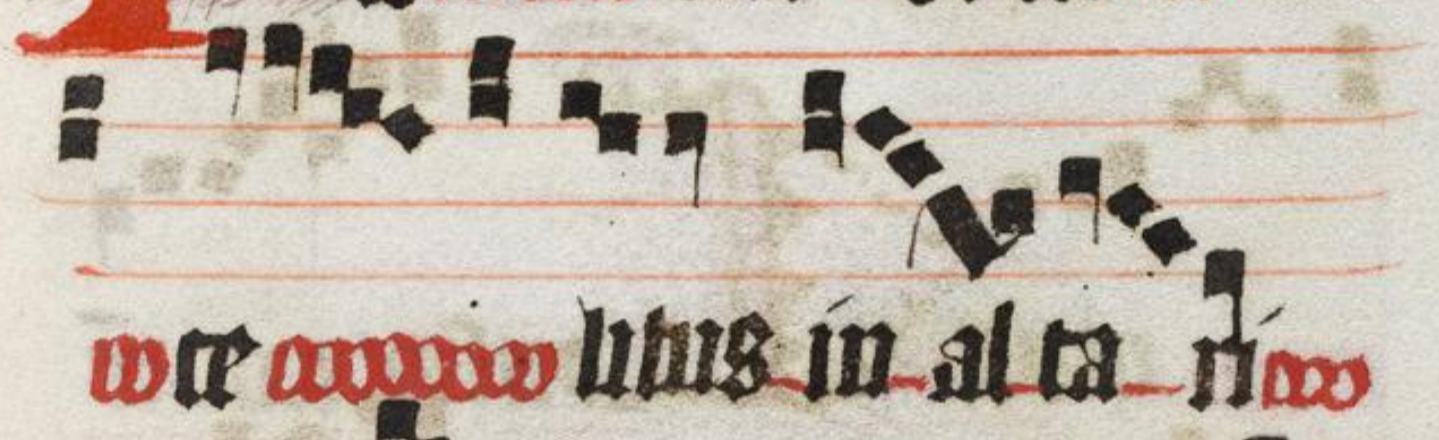 te litus in al ta ri